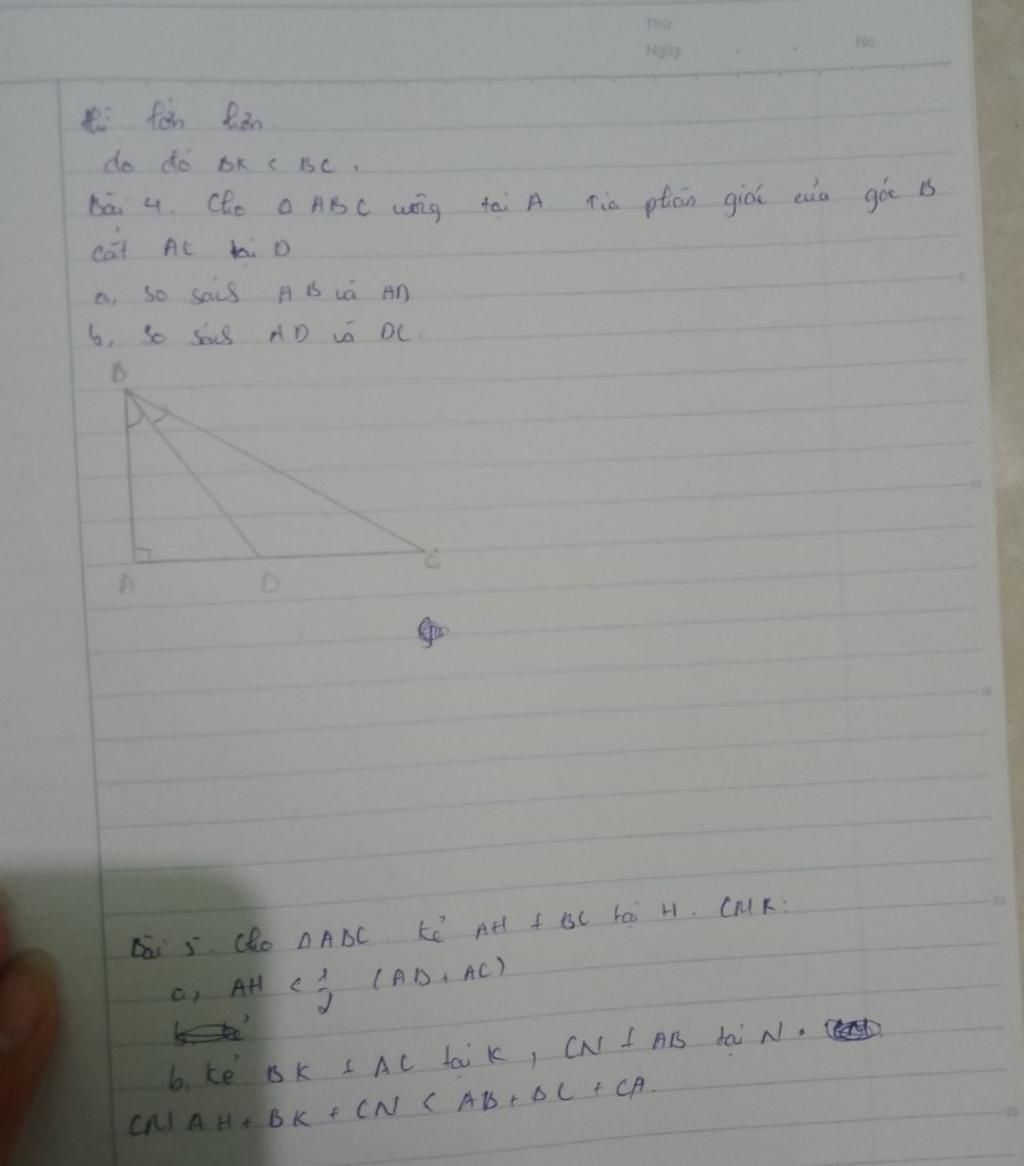 Thứ
Ngày . . No.
thì lớn hơn
do đó BK < BC.
Bài 4. Cho Δ ABC vuông tại A. Tia phân giác của góc B
cắt AC tại D
a, so sánh AB và AD
b, so sánh AD và DC.
B
A D C
Bài 5. Cho ΔABC. Kẻ AH ⊥ BC tại H. CMR:
a, AH < 1/2 (AB + AC)
b, Kẻ BK ⊥ AC tại K, CN ⊥ AB tại N.
CM AH + BK + CN < AB + BC + CA.